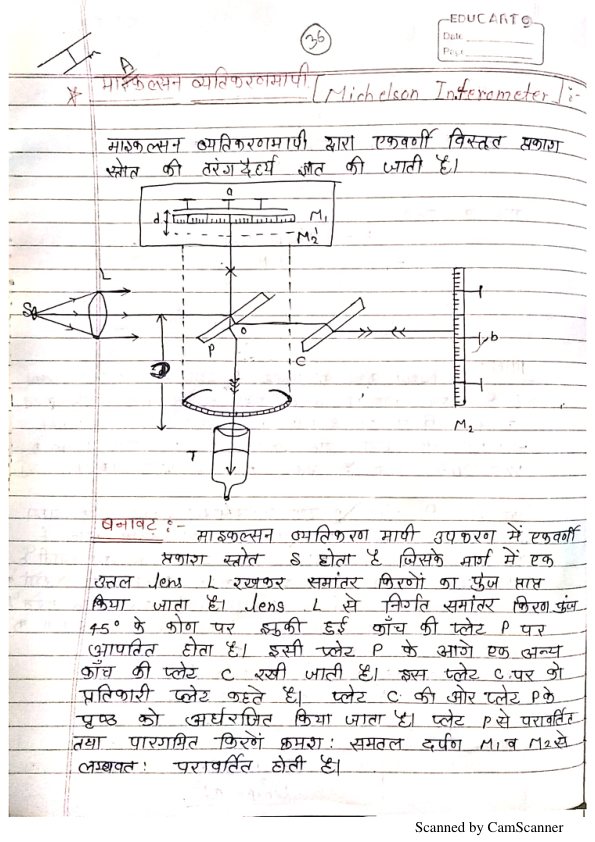 EDUCART
Date
Page
36
* माइकल्सन व्यतिकरणमापी [Michelson Interometer] :-
माइकल्सन व्यतिकरणमापी द्वारा एकवर्णी विस्तृत प्रकाश
स्त्रोत की तरंगदैर्ध्य ज्ञात की जाती है।
a
d
M₁
M₂'
L
S
P
O
C
b
M₂
T
बनावट :- माइकल्सन व्यतिकरण मापी उपकरण में एकवर्णी
प्रकाश स्त्रोत S होता है जिसके मार्ग में एक
उत्तल lens L रखकर समांतर किरणों का पुंज प्राप्त
किया जाता है। lens L से निर्गत समांतर किरण पुंज
45° के कोण पर झुकी हुई काँच की प्लेट P पर
आपतित होता है। इसी प्लेट P के आगे एक अन्य
काँच की प्लेट C रखी जाती है। इस प्लेट C पर को
प्रतिकारी प्लेट कहते है। प्लेट C की ओर प्लेट P के
पृष्ठ को अर्धरजित किया जाता है। प्लेट P से परावर्तित
तथा पारगमित किरणें क्रमश: समतल दर्पण M₁ व M₂ से
लम्बवत: परावर्तित होती है।
Scanned by CamScanner